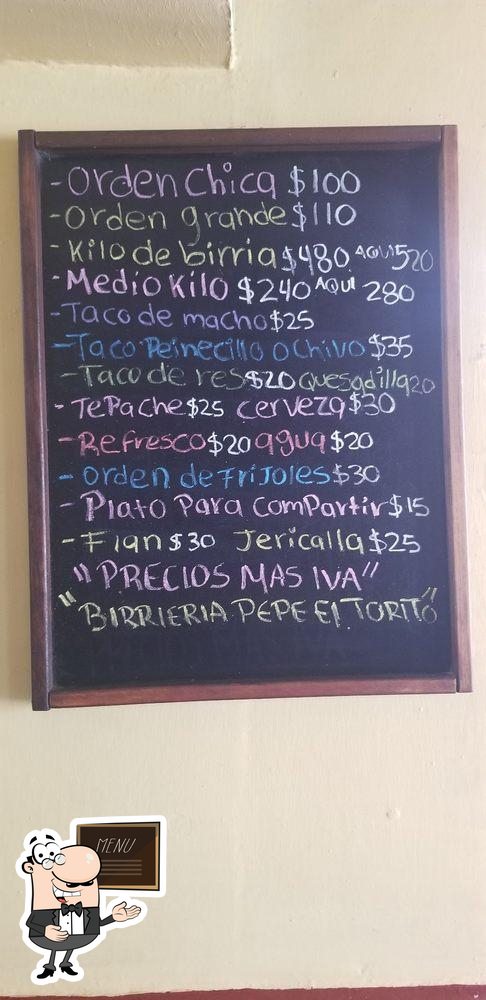 -Orden Chica $100
-Orden grande $110
-Kilo de birria $480 AQUI 520
-Medio Kilo $240 AQUI 280
-Taco de macho $25
-Taco Peinecillo o Chivo $35
-Taco de res $20 quesadilla 20
-TePache $25 cerveza $30
-Refresco $20 agua $20
-Orden de Frijoles $30
-Plato Para ComPartir $15
-Flan $30 Jericalla $25
"PRECIOS MAS IVA"
"BIRRIERIA PEPE El TORITO"
MENU